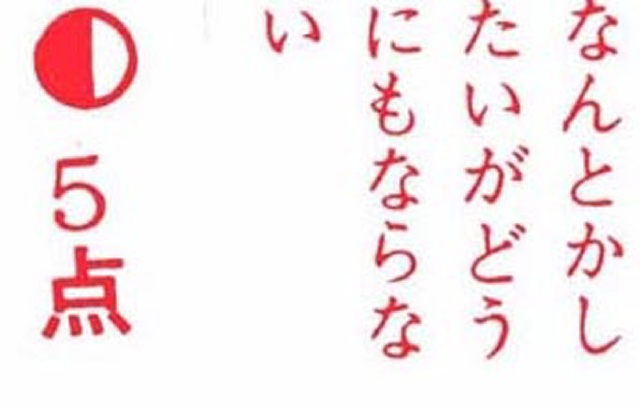 なんとかし
たいがどう
にもならな
い
5点